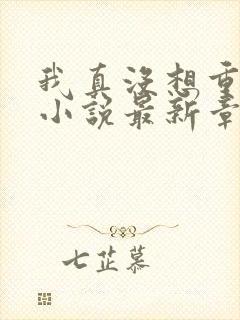 我真没想重
小说最新章
七芷慕